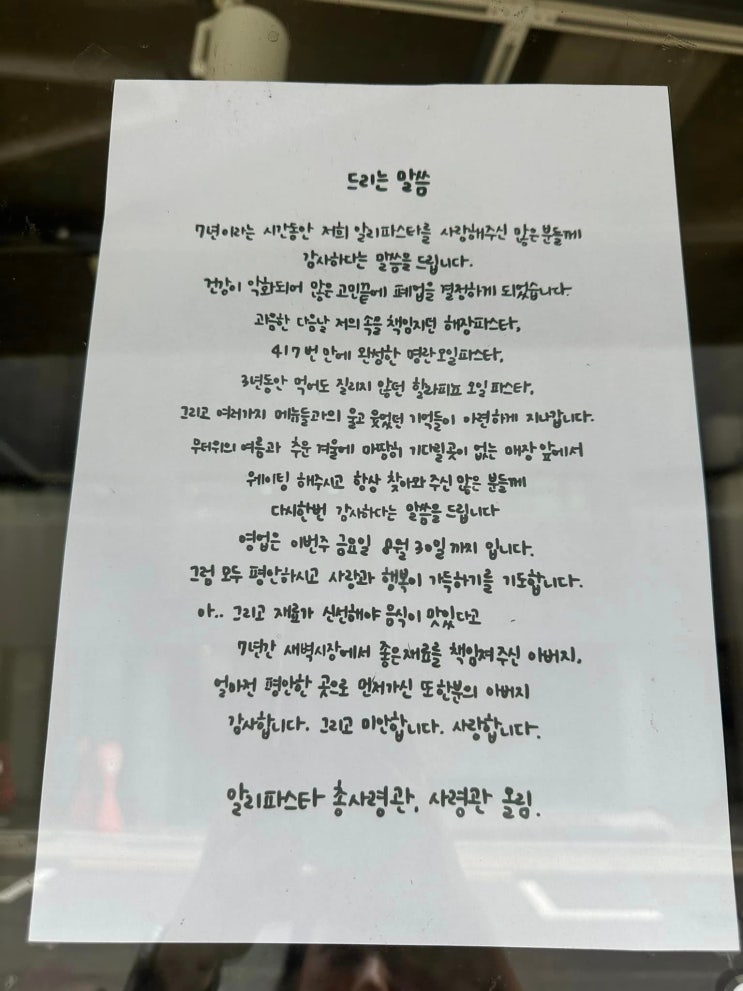 드리는 말씀
7년이라는 시간동안 저희 알리파스타를 사랑해주신 많은분들께
감사하다는 말씀을 드립니다.
건강이 악화되어 많은 고민끝에 폐업을 결정하게 되었습니다.
과음한 다음날 저의 속을 책임지던 해장파스타,
417번 만에 완성한 명란오일파스타,
3년동안 먹어도 질리지 않던 할라피뇨 오일 파스타,
그리고 여러가지 메뉴들과의 울고 웃었던 기억들이 아련하게 지나갑니다.
무더위의 여름과 추운 겨울에 마땅히 기다릴곳이 없는 매장 앞에서
웨이팅 해주시고 항상 찾아와 주신 많은 분들께
다시한번 감사하다는 말씀을 드립니다
영업은 이번주 금요일 8월 30일까지 입니다.
그럼 모두 평안하시고 사랑과 행복이 가득하기를 기도합니다.
아.. 그리고 재료가 신선해야 음식이 맛있다고
7년간 새벽시장에서 좋은재료를 책임져주신 아버지,
얼마전 평안한 곳으로 먼저가신 또한분의 아버지
감사합니다. 그리고 미안합니다. 사랑합니다.
알리파스타 총사령관, 사령관 올림.